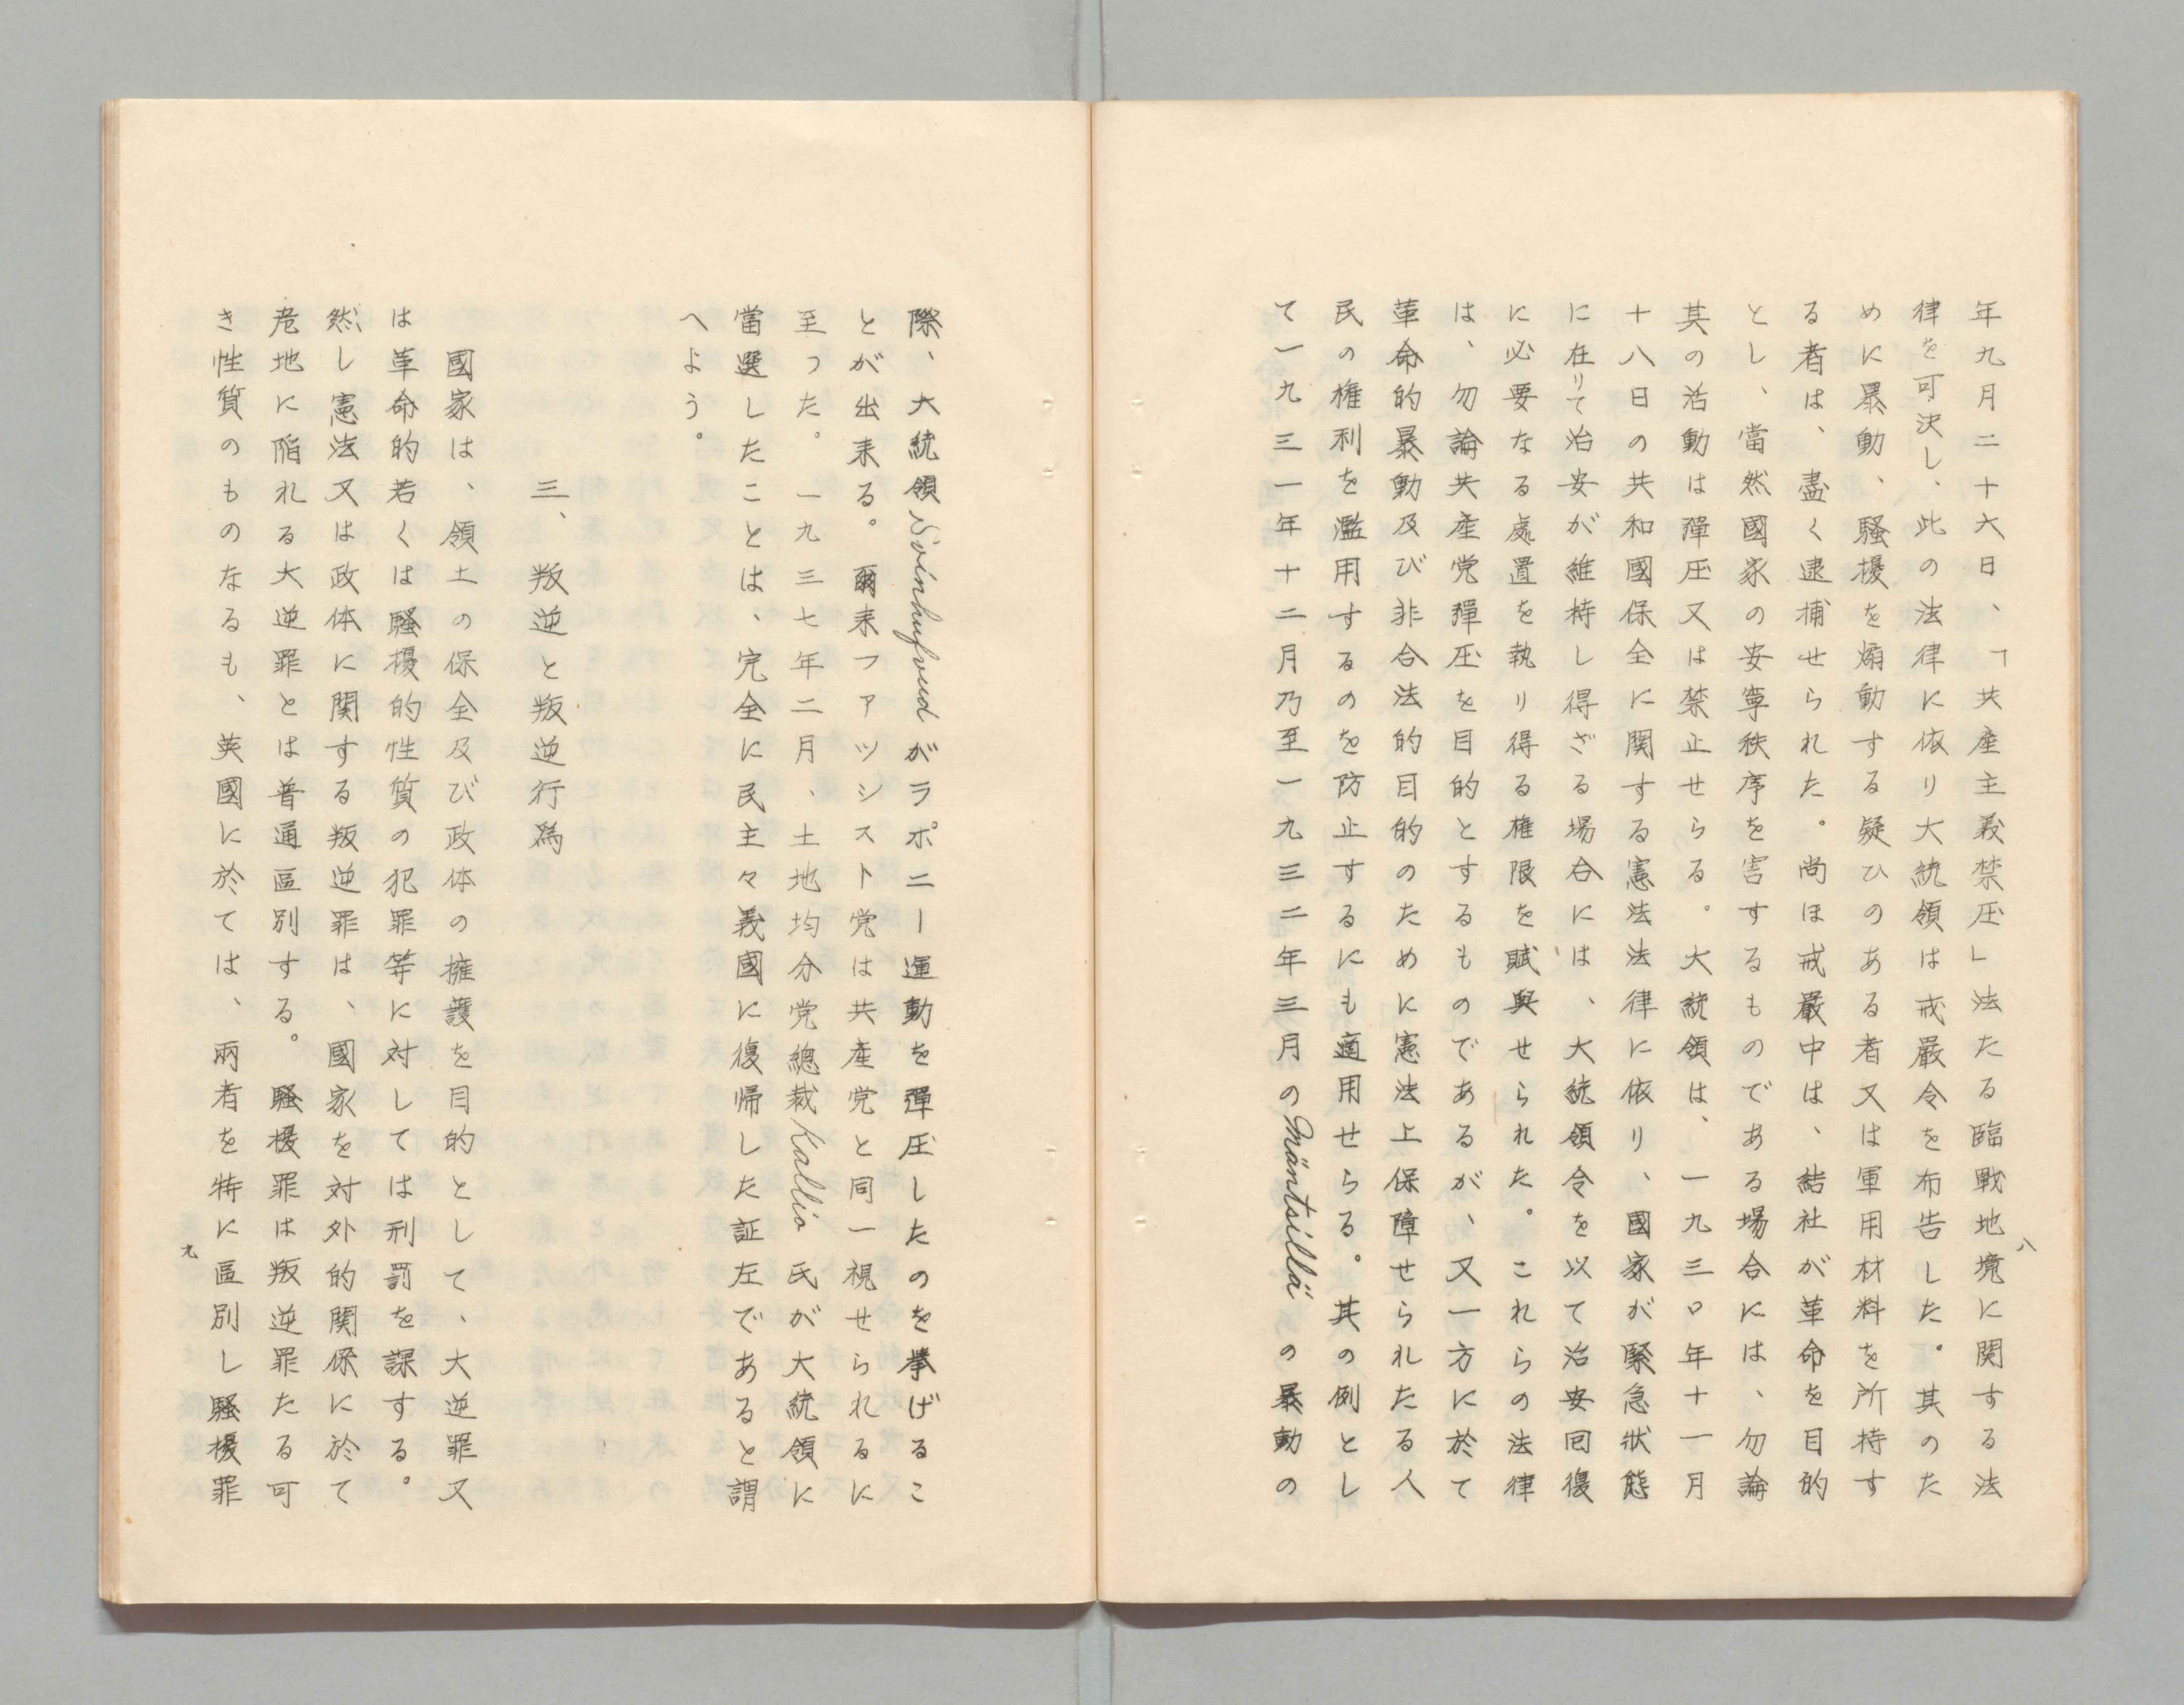 八
年九月二十六日、「共産主義禁圧」法たる臨戦地境に関する法
律を可決し、此の法律に依り大統領は戒嚴令を布告した。其のた
めに暴動、騷擾を煽動する疑ひのある者又は軍用材料を所持す
る者は、盡く逮捕せられた。尚ほ戒嚴中は、結社が革命を目的
とし、當然國家の安寧秩序を害するものである場合には、勿論
其の活動は彈圧又は禁止せらる。大統領は、一九三〇年十一月
十八日の共和國保全に関する憲法法律に依り、國家が緊急狀態
に在りて治安が維持し得ざる場合には、大統領令を以て治安回復
に必要なる處置を執り得る権限を賦與せられた。これらの法律
は、勿論共産党彈圧を目的とするものであるが、又一方に於て
革命的暴動及び非合法的目的のために憲法上保障せられたる人
民の権利を濫用するのを防止するにも適用せらる。其の例とし
て一九三一年十二月乃至一九三二年三月のMäntsillä の暴動の
際、大統領Svinhufvudがラポニー運動を彈圧したのを挙げるこ
とが出来る。爾来ファッシスト党は共産党と同一視せられるに
至った。一九三七年二月、土地均分党總裁Kallio 氏が大統領に
當選したことは、完全に民主々義國に復帰した証左であると謂
へよう。
三、叛逆と叛逆行為
國家は、領土の保全及び政体の擁護を目的として、大逆罪又
は革命的若くは騷擾的性質の犯罪等に対しては刑罰を課する。
然し憲法又は政体に関する叛逆罪は、國家を対外的関係に於て
危地に陥れる大逆罪とは普通區別する。騷擾罪は叛逆罪たる可
き性質のものなるも、英國に於ては、兩者を特に區別し騷擾罪
九